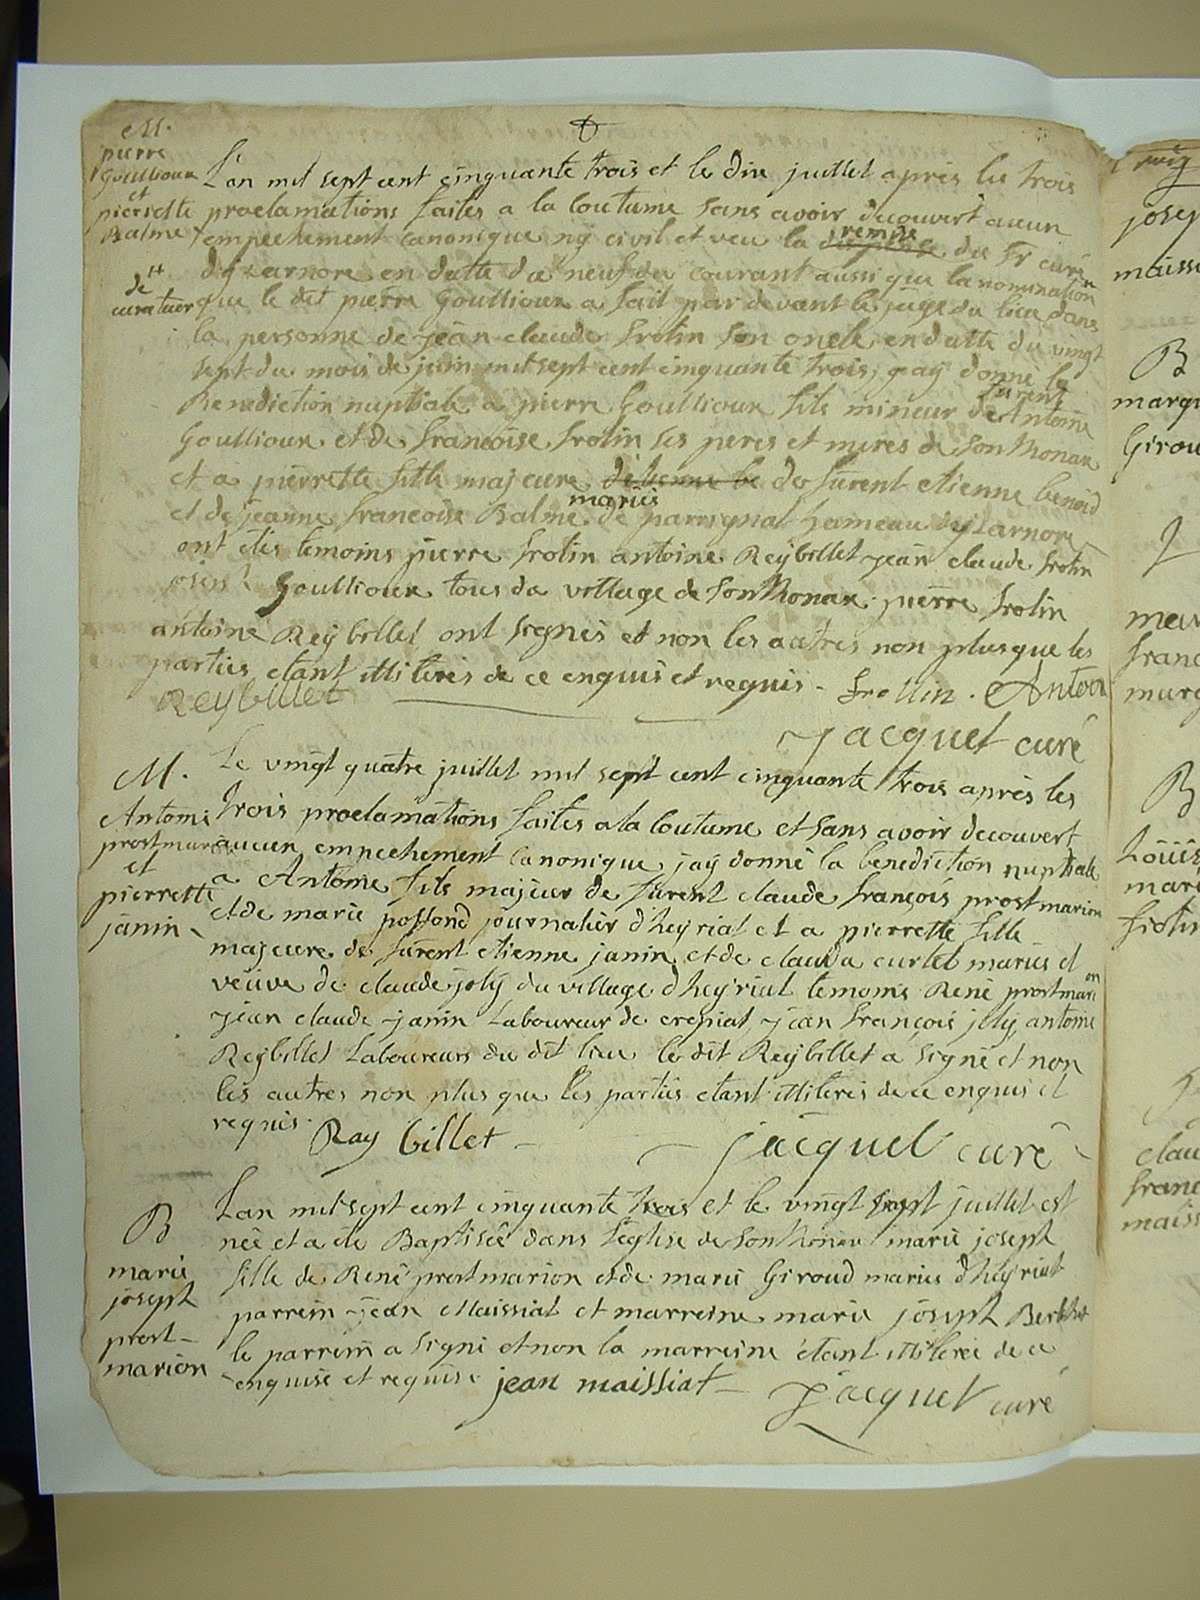 M.
pierre
Goullioux
et
pierrette
Balme
L'an mil sept cent cinquante trois et le dix juillet après les trois
proclamations faites a la Coutume sans avoir decouvert aucun
empechement canonique ny civil et veu la remise du Sr curé
dizarnore en datte du neuf du courant aussi que la nomination
de
curateur
que le dit pierre Goullioux a fait par devant le juge du lieu dans
la personne de jean claude frolin son oncle en datte du vingt
sept du mois de juin mil sept cent cinquante trois, j'ay donné la
Benediction nuptiale a pierre Goullioux fils mineur de furent Antoine
Goullioux et de francoise frolin ses peres et meres de Sonthonax
et a pierrette fille majeure de furent etienne benoid
et de jeanne francoise Balme mariés de parignat hameau dizarnore
ont étés temoins pierre frolin antoine Reybillet jean claude frolin
Goullioux tous du village de Sonthonax pierre frolin
antoine Reybillet ont signés et non les autres non plus que les
parties etant illiterés de ce enquis et requis. frollin. Antoi
Reybillet
jacquet curé
M.
Antoine
prost marion
et
pierrette
janin
Le vingt quatre juillet mil sept cent cinquante trois après les
trois proclamations faites a la Coutume et sans avoir decouvert
aucun empechement canonique jaÿ donné la benediction nuptiale
a Antoine fils majeur de furent claude françois prost marion
et de marie possond journalier d'heyriat et a pierrette fille
majeure de furent etienne janin et de clauda curlet mariés et
veuve de claude joly du village d'heyriat temoins René prost marion
jean claude janin Laboureur de crepiat, jean françois joly, antoine
Reybillet Laboureurs du dit lieu le dit Reybillet a signé et non
les autres non plus que les parties etant illiterés de ce enquis et
requis. Ray billet
jacquet curé
B
marie
joseph
prost-
marion
Lan mil sept cent cinquante trois et le vingt sept juillet est
née et a été Baptisée dans l'eglise de Sonthonax marie joseph
fille de René prost marion et de marie Giroud mariés d'heyriat
parrein jean Maissiat et marreine marie joseph Berthet
le parrein a signé et non la marreine étant illiterée de ce
enquise et requise. jean maissiat
Jacquet curé